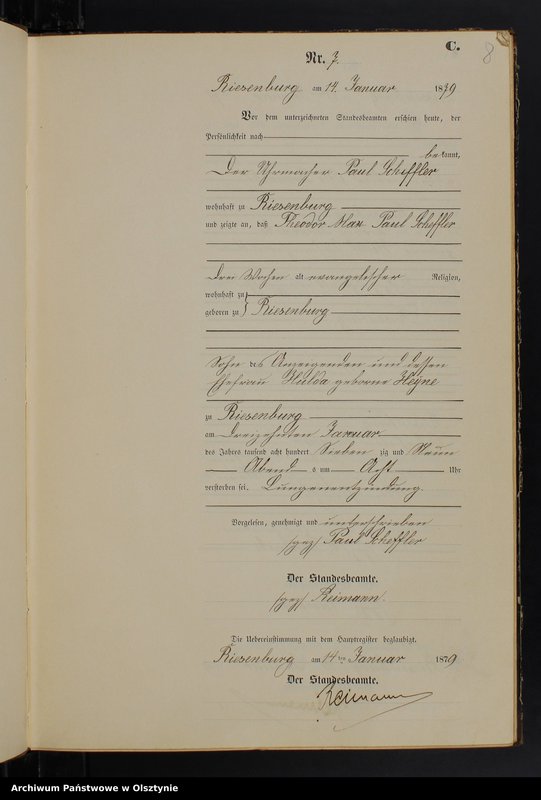 C.
8
Nr. 7.
Riesenburg am 14. Januar 1879
Vor dem unterzeichneten Standesbeamten erschien heute, der
Persönlichkeit nach
bekannt,
Der Uhrmacher Paul Scheffler
wohnhaft zu Riesenburg
und zeigte an, daß Theodor Max Paul Scheffler
drei Wochen alt evangelischer Religion,
wohnhaft zu
geboren zu } Riesenburg
Sohn des Anzeigenden und dessen
Ehefrau Hulda geborne Heyne
zu Riesenburg
am dreizehnten Januar
des Jahres tausend acht hundert Sieben zig und Neun
Abend s um Acht Uhr
verstorben sei. Lungenentzündung.
Vorgelesen, genehmigt und unterschrieben
(gez) Paul Scheffler
Der Standesbeamte.
(gez) Reimann.
Die Uebereinstimmung mit dem Hauptregister beglaubigt.
Riesenburg am 14ten Januar 1879
Der Standesbeamte.
Reimann
Archiwum Państwowe w Olsztynie